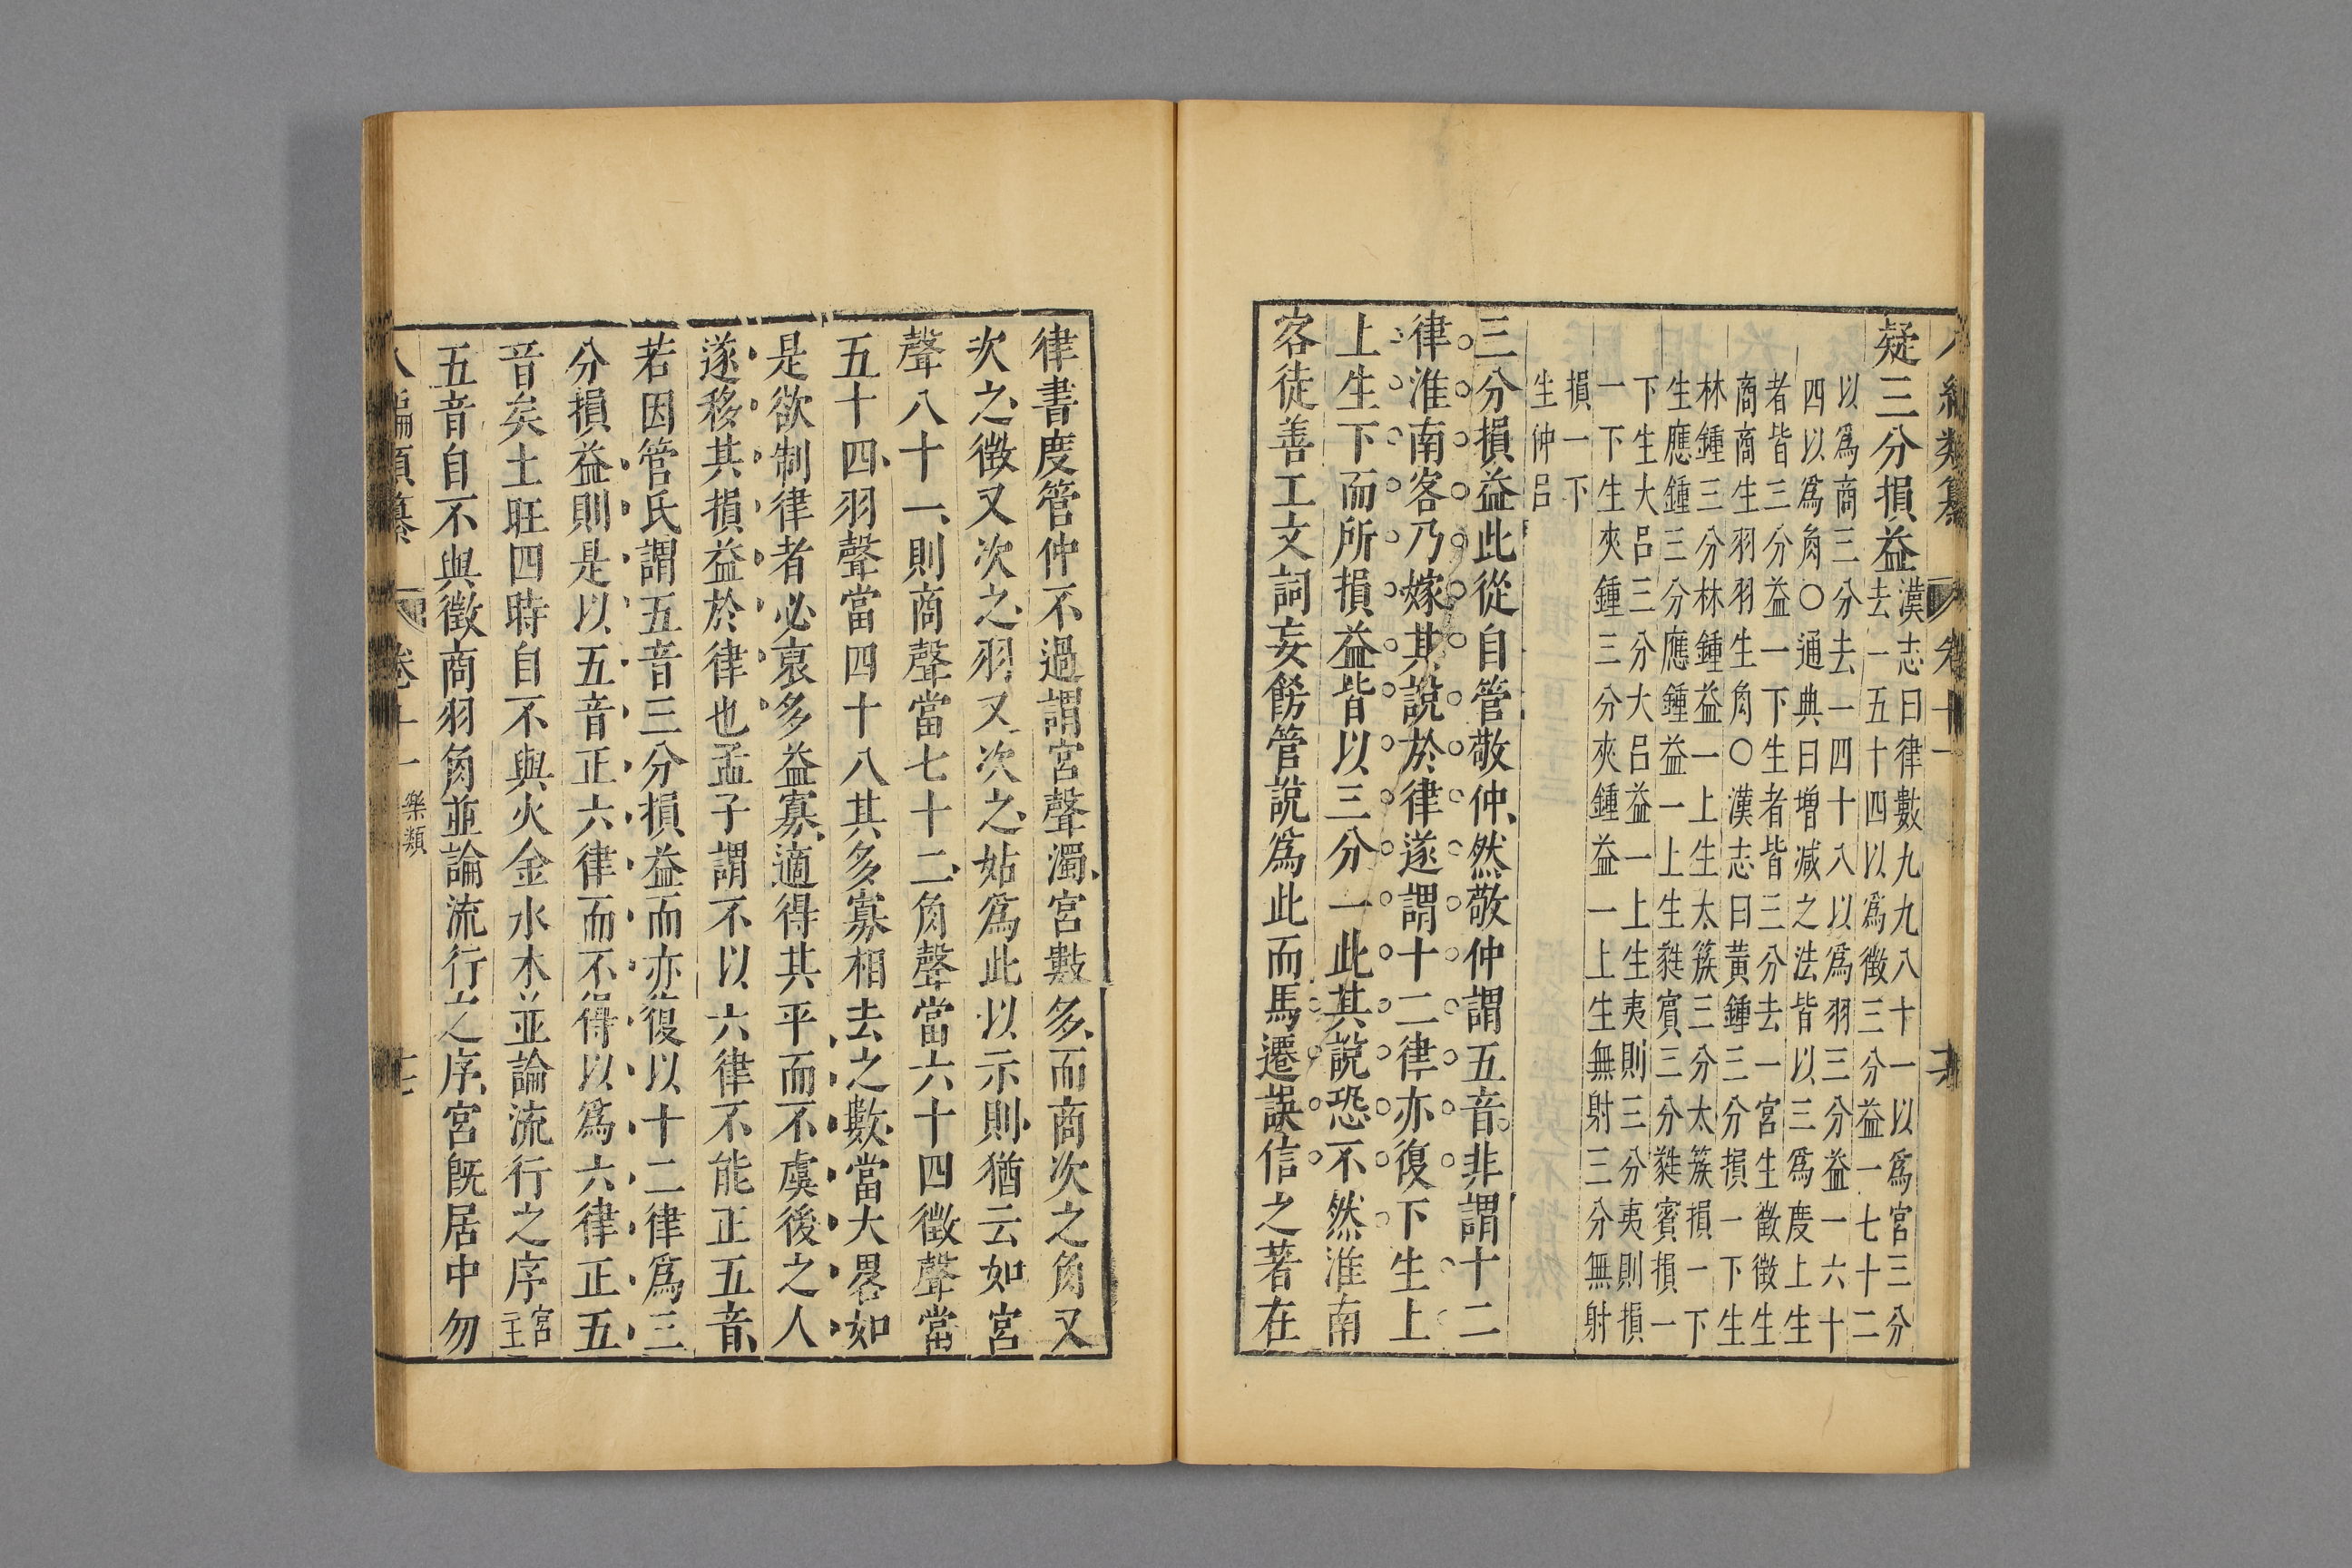 疑三分損益漢志曰律數九九八十一以爲宮三分
去一五十四以爲徵三分益一七十二
以爲商三分去一四十八以爲羽三分益一六十
四以爲角○通典曰增減之法皆以三爲度上生
者皆三分益一下生者皆三分去一宮生徵徵生
商商生羽羽生角○漢志曰黃鍾三分損一下生
林鍾三分林鍾益一上生太簇三分太簇損一下
生應鍾三分應鍾益一上生蕤賓三分蕤賓損一
下生大呂三分大呂益一上生夷則三分夷則損
一下生夾鍾三分夾鍾益一上生無射三分無射
損一下
生仲呂
三分損益此從自管敬仲然敬仲謂五音非謂十二
律淮南客乃嫁其說於律遂謂十二律亦復下生上
上生下而所損益皆以三分一此其說恐不然淮南
客徒善工文詞妄餝管說爲此而馬遷誤信之著在
律書度管仲不過謂宮聲濁宮數多而商次之角又
次之徵又次之羽又次之姑爲此以示則猶云如宮
聲八十一則商聲當七十二角聲當六十四徵聲當
五十四羽聲當四十八其多寡相去之數當大畧如
是欲制律者必裒多益寡適得其平而不虞後之人
遂移其損益於律也孟子謂不以六律不能正五音
若因管氏謂五音三分損益而亦復以十二律爲三
分損益則是以五音正六律而不得以爲六律正五
音矣土旺四時自不與火金水木並論流行之序宮
主
五音自不與徵商羽角並論流行之序宮旣居中勿
八編類纂 卷十一 樂類 十七